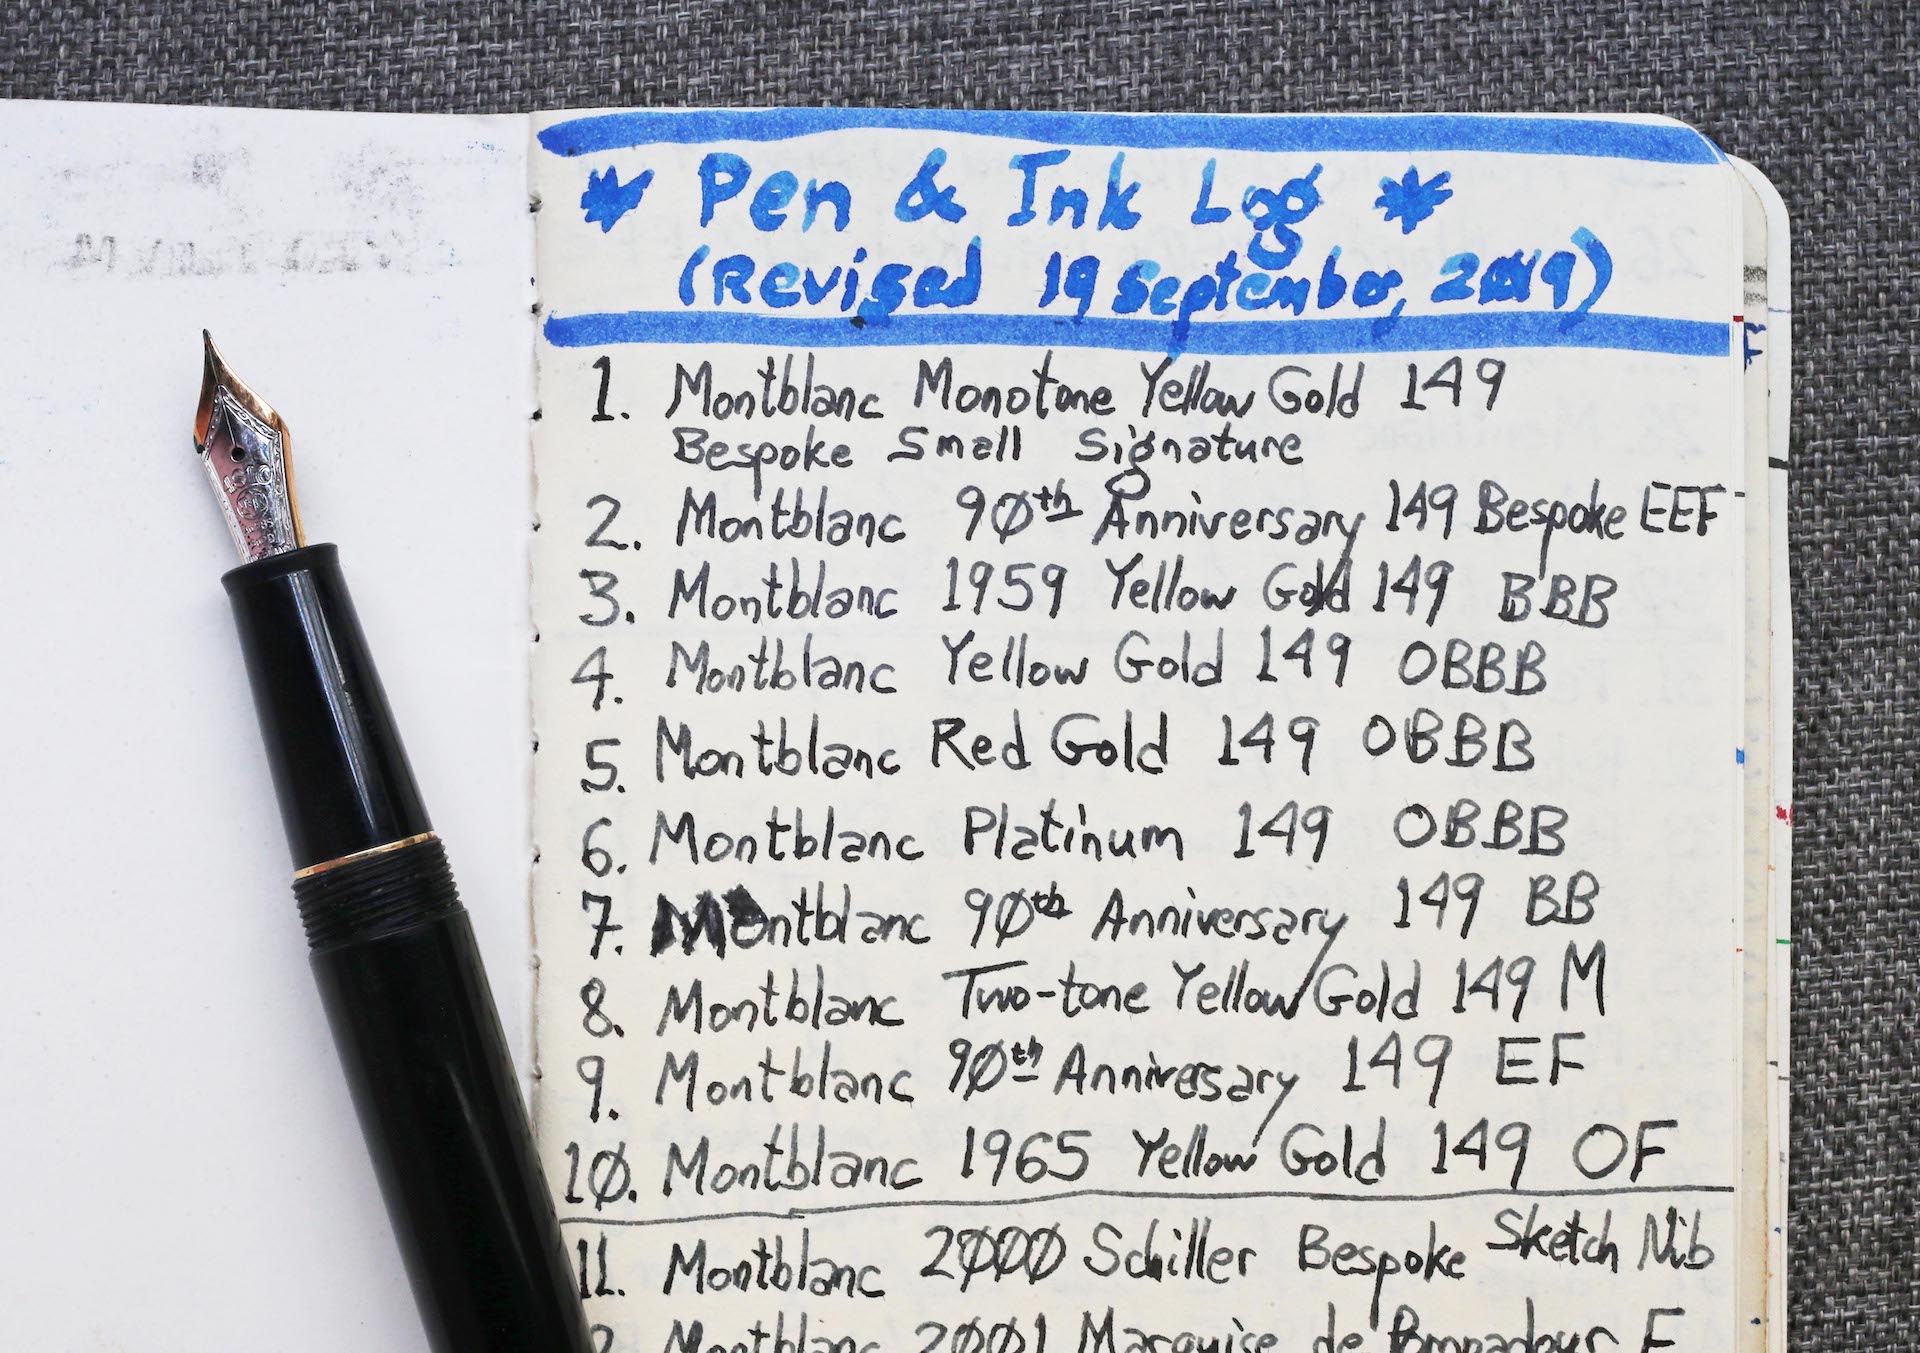 * Pen & Ink Log *
(Revised 19 September, 2019)
1. Montblanc Monotone Yellow Gold 149
Bespoke Small Signature
2. Montblanc 90th Anniversary 149 Bespoke EEF
3. Montblanc 1959 Yellow Gold 149 BBB
4. Montblanc Yellow Gold 149 OBBB
5. Montblanc Red Gold 149 OBBB
6. Montblanc Platinum 149 OBBB
7. Montblanc 90th Anniversary 149 BB
8. Montblanc Two-tone Yellow Gold 149 M
9. Montblanc 90th Anniversary 149 EF
10. Montblanc 1965 Yellow Gold 149 OF
11. Montblanc 2000 Schiller Bespoke Sketch Nib
2. Montblanc 2001 Marquise de Pompadour F